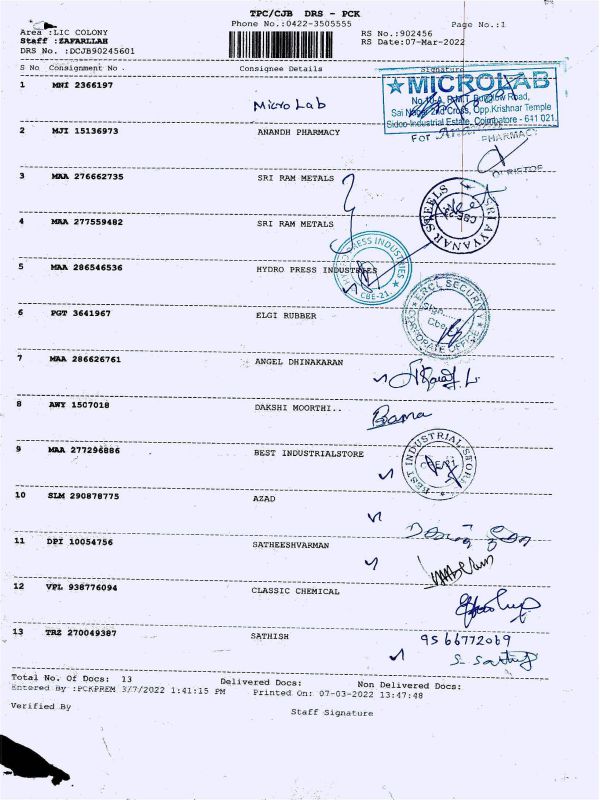 TPC/CJB DRS - PCK
Phone No.:0422-3505555 Page No.:1
Area :LIC COLONY RS No.:902456
Staff :ZAFARULLAH RS Date:07-Mar-2022
DRS No. :DCJB90245601
S No Consignment No . Consignee Details Signature
1 MNI 2366197 Micro Lab
MICROLAB
Sai Nagar 2nd Cross, Opp.Krishnar Temple
Sidco Industrial Estate, Coimbatore - 641 021.
2 MJI 15136973 ANANDH PHARMACY
For PHARMACY
3 MAA 276662735 SRI RAM METALS
SRI AYYANAR STEELS
4 MAA 277559482 SRI RAM METALS
5 MAA 286546536 HYDRO PRESS INDUSTRIES
HYDRO PRESS INDUSTRIES
CBE-21
6 PGT 3641967 ELGI RUBBER
ERCL SECURITY
CORPORATE OFFICE
7 MAA 286626761 ANGEL DHINAKARAN
8 AWY 1507018 DAKSHI MOORTHI.. Rama
9 MAA 277296886 BEST INDUSTRIALSTORE
BEST INDUSTRIAL STORE
10 SLM 290878775 AZAD
11 DPI 10054756 SATHEESHVARMAN
12 VPL 938776094 CLASSIC CHEMICAL
13 TRZ 270049387 SATHISH 9566772069
Total No. Of Docs: 13 Delivered Docs: Non Delivered Docs:
Entered By :PCKPREM 3/7/2022 1:41:15 PM Printed On: 07-03-2022 13:47:48
Verified By Staff Signature